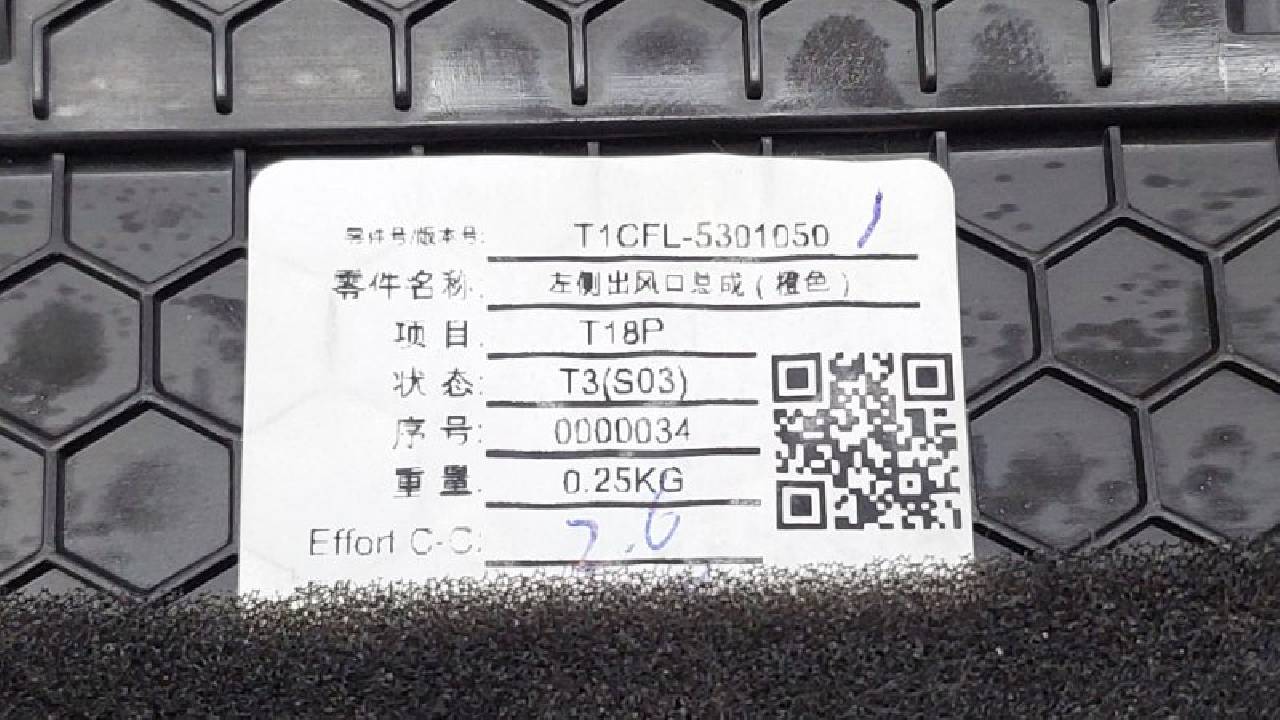 零件号/版本号: T1CFL-5301050
零件名称: 左侧出风口总成(橙色)
项目: T18P
状态: T3(S03)
序号: 0000034
重量: 0.25KG
Effort C-C: 2.6